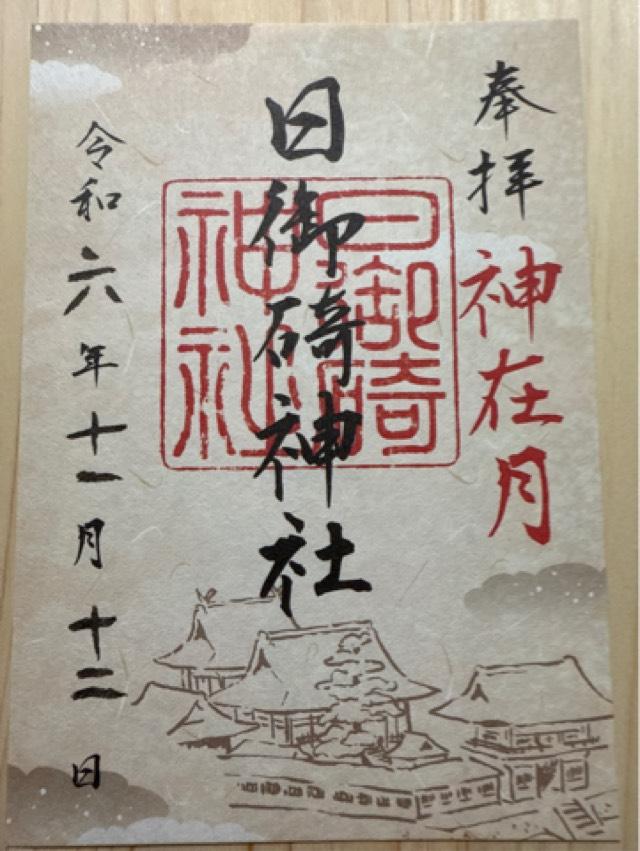 奉拝
神在月
日御碕神社
日御碕
神社
令和六年十一月十二日